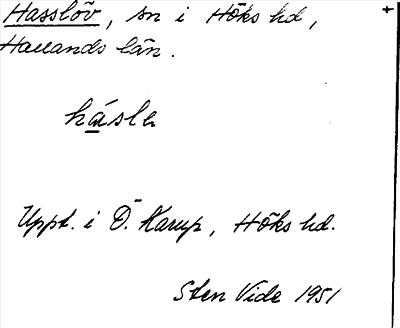 Hasslöv, sn i Höks hd,
Hallands län.
hásle
Uppt. i Ö. Karup, Höks hd.
Sten Vide 1951